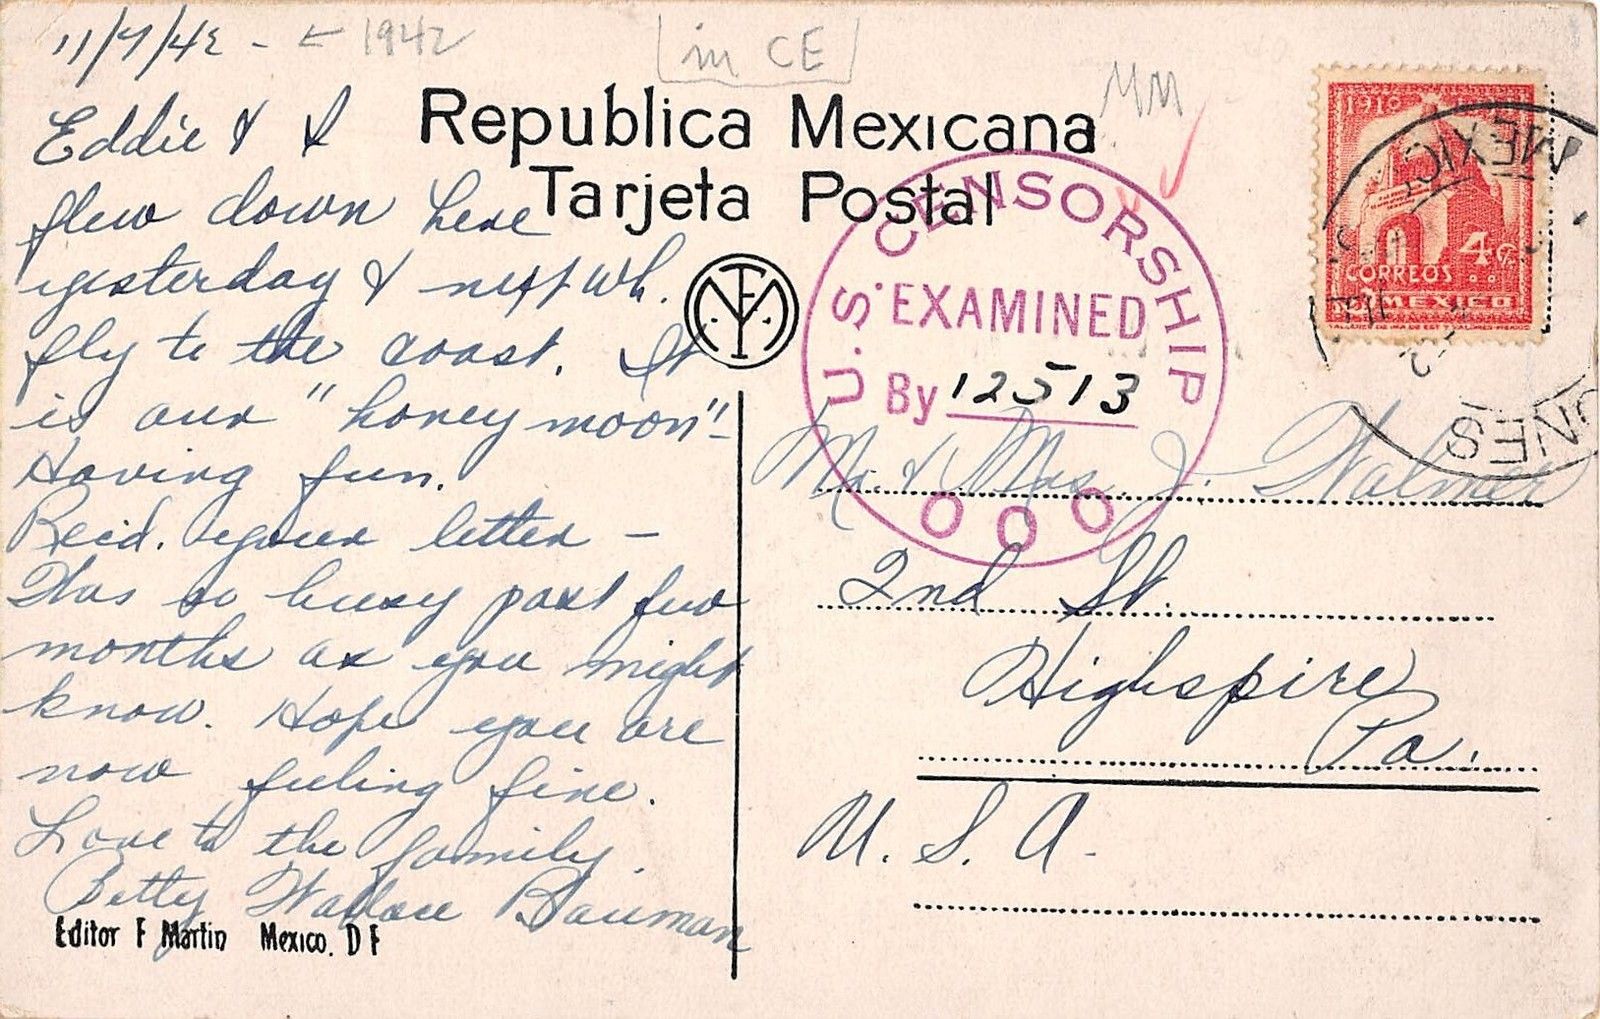 11/7/42 - ← 1942
in CE
MM
Republica Mexicana
Tarjeta Postal
Eddie & I
flew down here
yesterday & next wk.
fly to the coast. It
is our "honey moon" -
Having fun.
Recd. your letter -
Was so busy past few
months as you might
know. Hope you are
now feeling fine.
Love to the family.
Betty Wallace Bauman
Editor F Martin Mexico. D F
U.S. CENSORSHIP
EXAMINED
By 12513
1910
4 Cts.
CORREOS
MEXICO
MEXICO
Mr. & Mrs. J. Walmer
2nd St.
Highspire
Pa.
U. S. A.